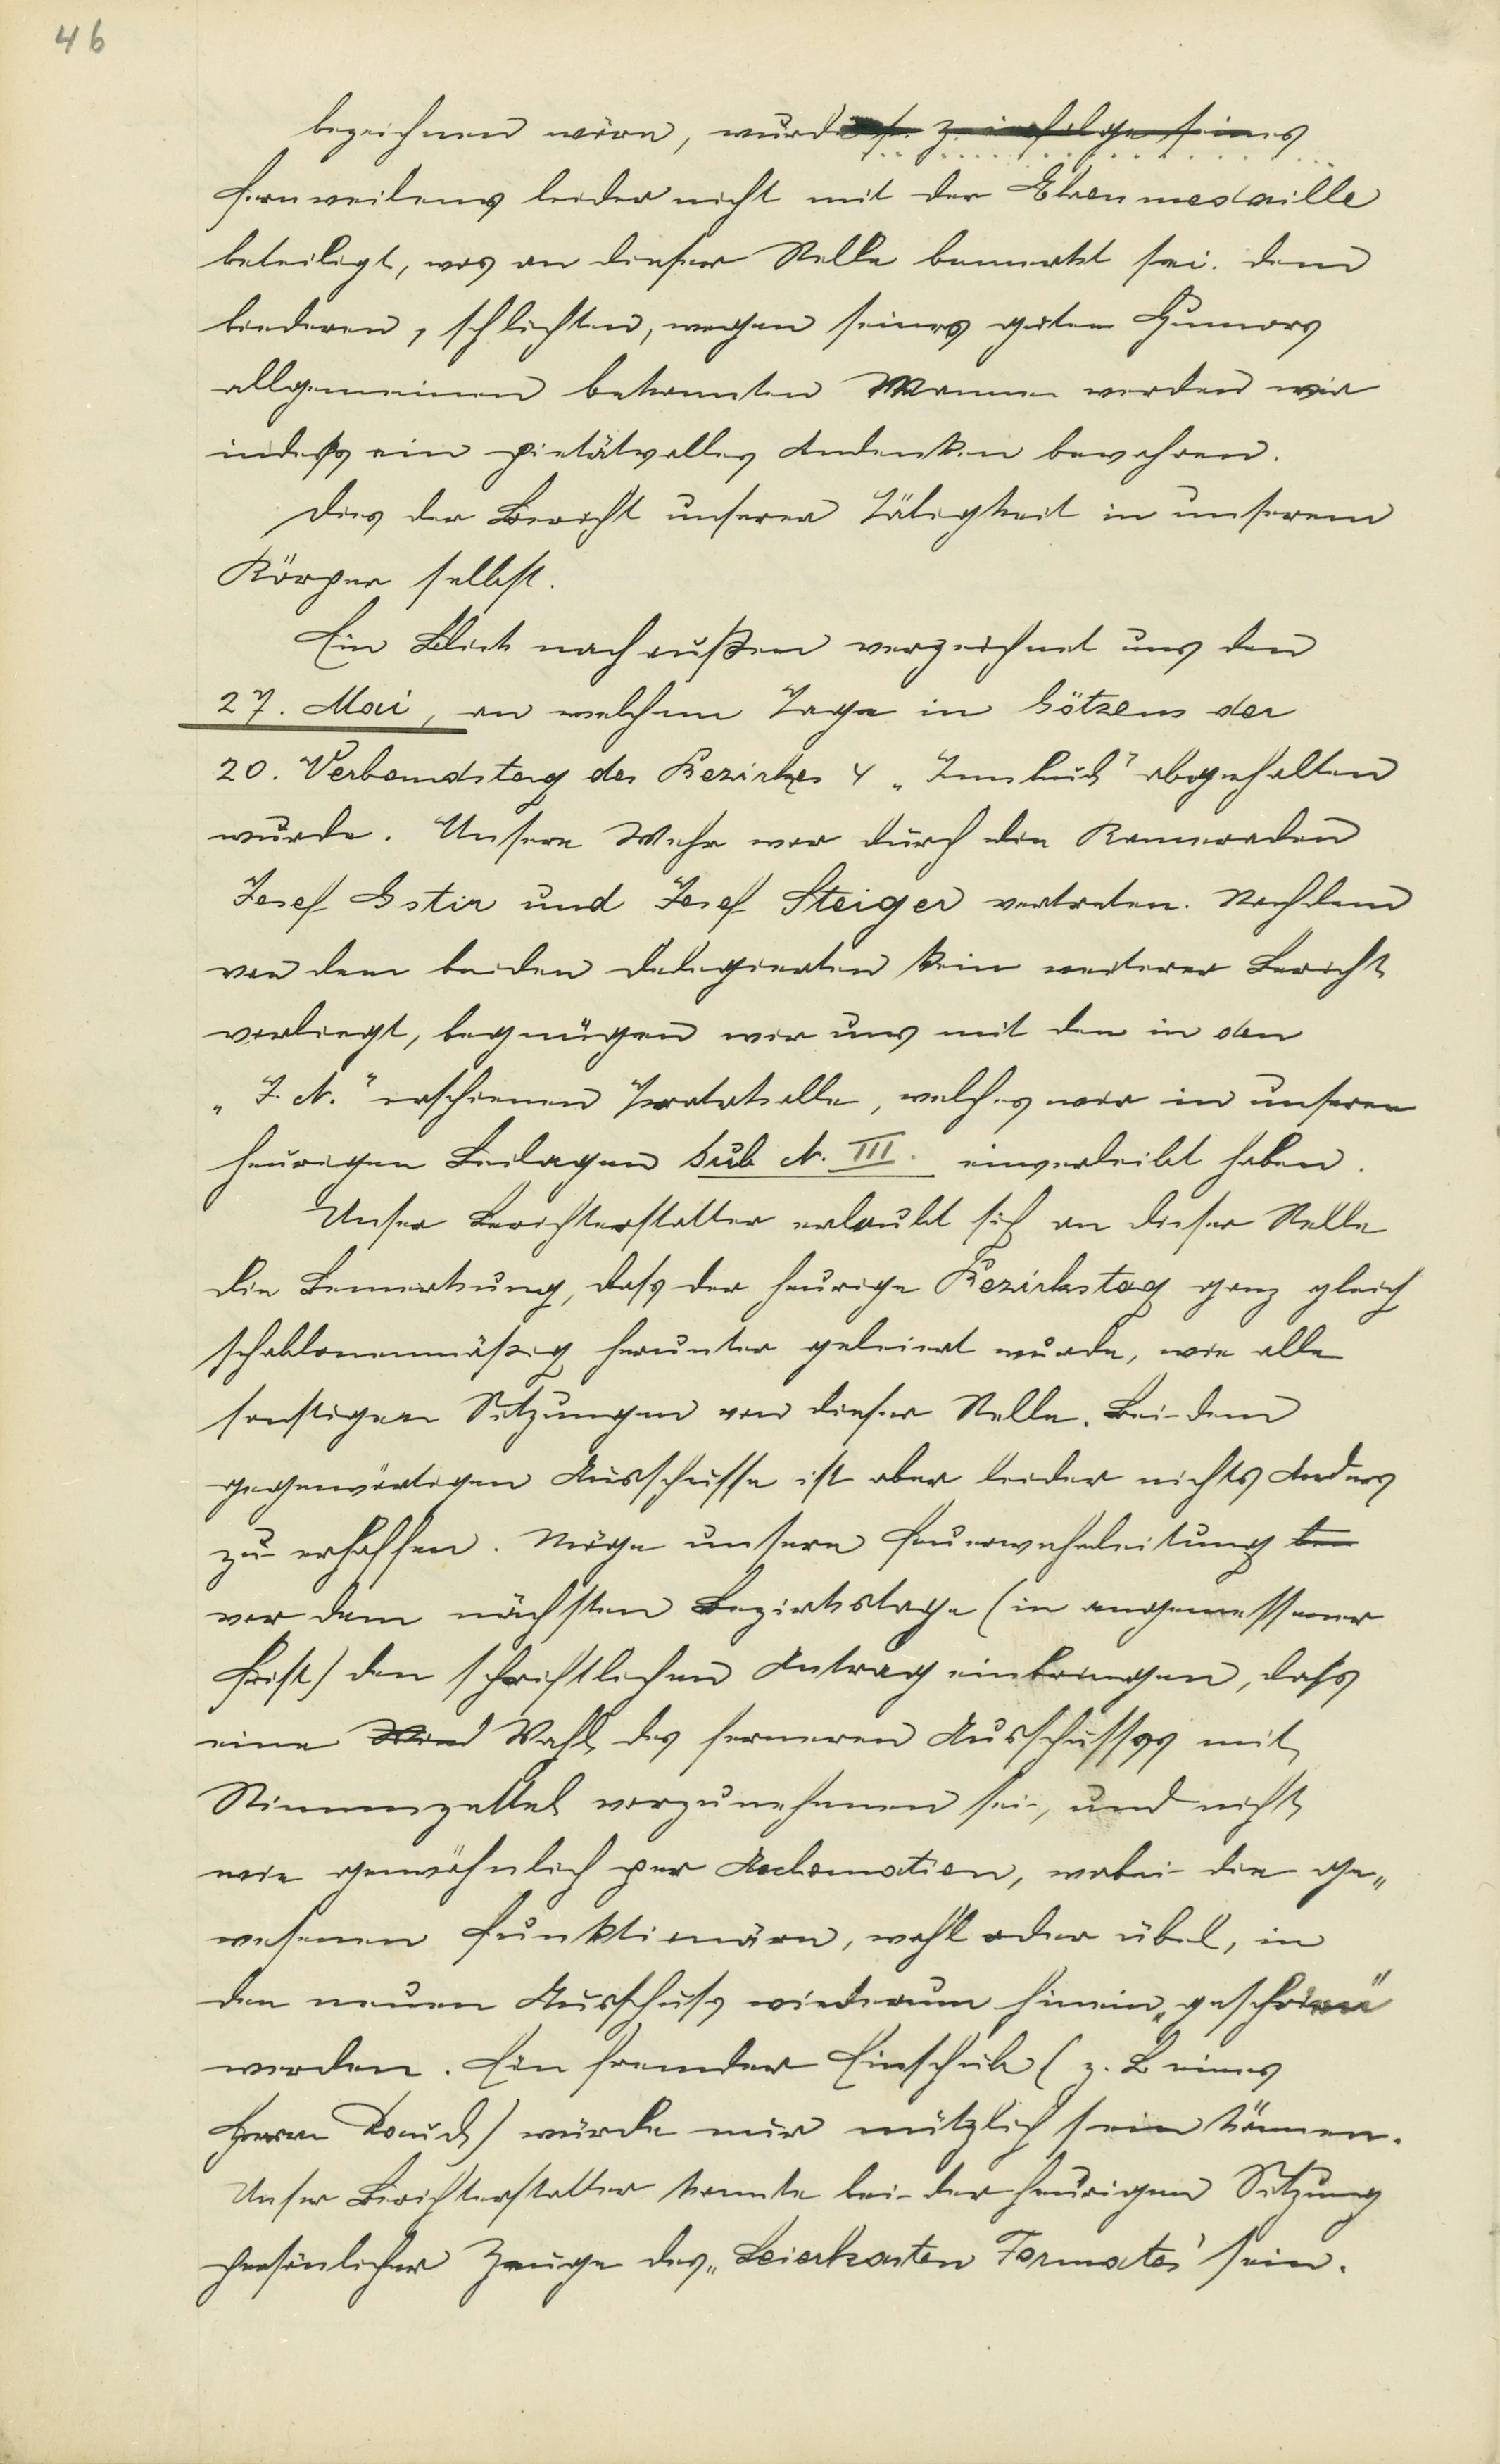 46
bezeichnen wäre, wurde infolge seines
Fernweilens leider nicht mit der Ehrenmedaille
beteiligt, was an dieser Stelle bemerkt sei. Dem
biederen, schlichten, wegen seines guten Humors
allgemeinen bekannten Manne werden wir
indess ein pietätvolles Andenken bewahren.
Dies der Bericht unserer Tätigkeit in unserem
Körper selbst.
Ein Blick nach außen verzeichnet uns den
27. Mai, an welchem Tage in Götzens der
20. Verbandstag des Bezirkes 4 „Innsbruck" abgehalten
wurde. Unsere Wehr war durch die Kameraden
Josef Gstir und Josef Steiger vertreten. Nachdem
von den beiden Delegierten kein weiterer Bericht
vorliegt, begnügen wir uns mit den in den
„I. N." erschienen Protokolle, welches wir in unseren
heurigen Beilagen sub N. III. einverleibt haben.
Unser Berichterstatter erlaubt sich an dieser Stelle
die Bemerkung, dass der heurige Bezirkstag ganz gleich
schablonenmäßig herunter geleiert wurde, wie alle
sonstigen Sitzungen von dieser Stelle. Bei dem
gegenwärtigen Ausschusse ist aber leider nichts Anders
zu erhoffen. Möge unsere Feuerwehrleitung
vor dem nächsten Bezirkstage (in angemessener
Frist) den schriftlichen Antrag einbringen, dass
eine Wahl des ferneren Ausschusses mit
Stimmzettel vorzunehmen sei, und nicht
wie gewöhnlich per Aclamation, wobei die ge„
wesenen Funktionäre, wohl oder übel, in
den neuen Ausschuss wiederum hinein „geschrien"
werden. Ein fremder Einschub (z. B eines
Herrn) würde nur nützlich sein können.
Unser Berichterstatter konnte bei der heurigen Sitzung
persönlicher Zeuge des „Leierkasten Formates" sein.